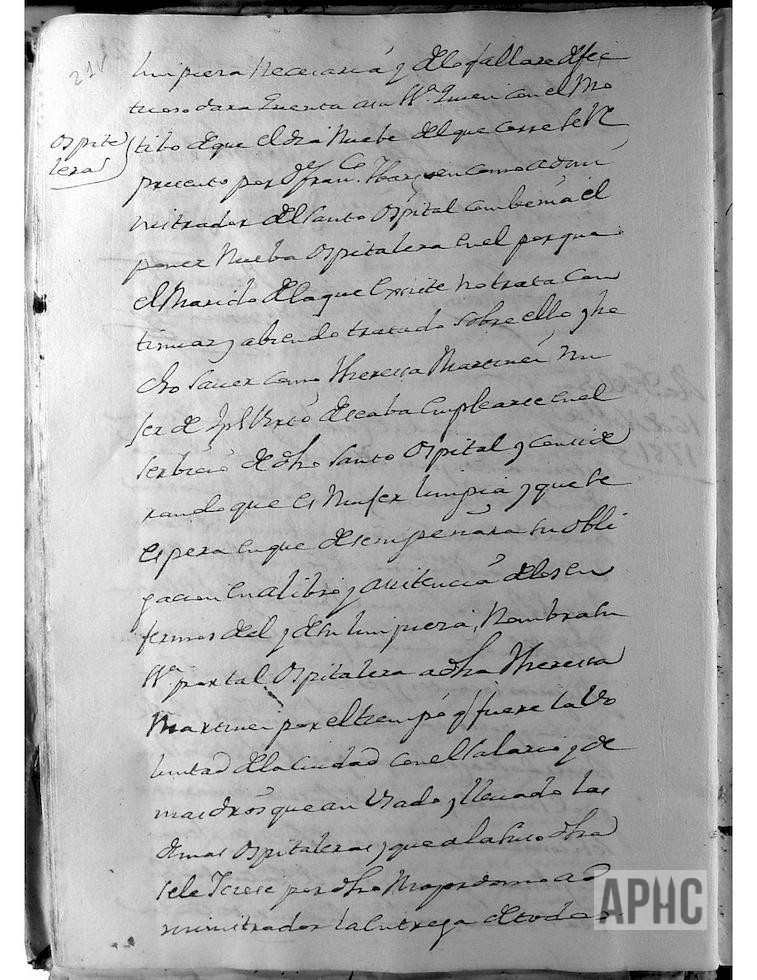 211
limpieza necesaria y de lo q allare defec
tuoso dara Quenta a su Sa. Quien con el Mo
tibo de que el dia Nuebe del que corre se Re
Ospita
lera
presento por Dn. Franco. Ybarguen como admi
nistrador del Santo Ospital combenia el
poner Nueba Ospitalera en el porque
el Marido de la que Existe no trata Con
tinuar y abiendo tratado sobre ello y he
cho saver como Theressa Martinez Mu
jer de Jph deseaba emplearse en el
serbicio de dho Santo Ospital y conside
rando que es Mujer limpia y que se
espera en que desempeñara su obli
gacion en alibio y asistencia de los en
fermos del y de su limpieza, Nombra su
Sa. por tal Ospitalera a dha Theressa
Martinez por el tiempo q fuere la Vo
luntad de la Ciudad con el salario y de
mas dros que an Usado y lleuado las
demas Ospitaleras y que a la suso dha
se le Yciese por dho Mayordomo ad
ministrador la entrega de todos
APHC